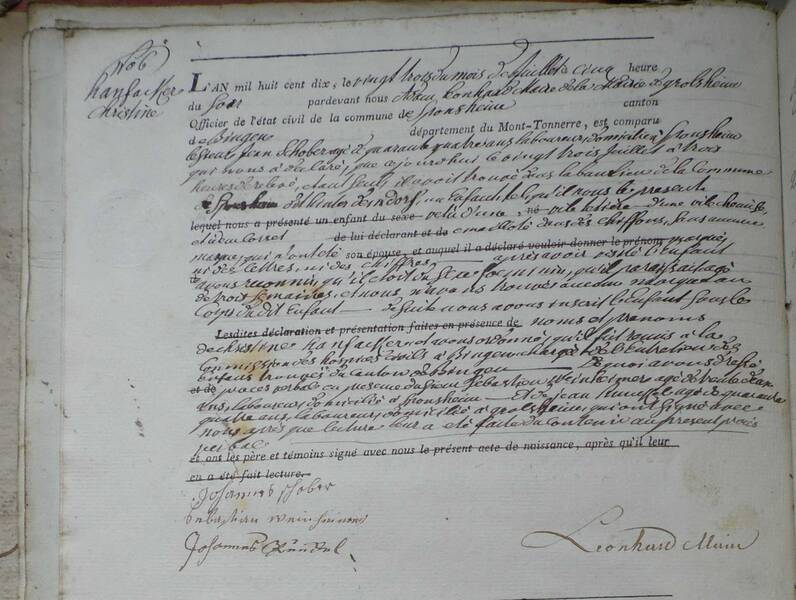 No 6
hanfacker
Christine
L'AN mil huit cent dix, le vingt trois du mois de Juillet à Cinq heure
du Soir pardevant nous Adam Leonhard Maire de la Mairie de grolsheim
Officier de l'état civil de la commune de Sponsheim canton
de Bingen département du Mont-Tonnerre, est comparu
le Sieur Jean Schober agé de quarante quatre ans laboureur, domicilié à Sponsheim
qui nous a declaré, que ce jourdhui le vingt trois Juillet à trois
heures de relevé, étant seul, il avoit trouvé dans la banlieue de la Commune
de Sponsheim dit hinter dem dorf, un Enfant tel qu'il nous le presente
lequel nous a présenté un enfant du sexe vetu d'une, né d'une chemise,
et d'un Corset de lui déclarant et de emaillotté dans des chiffons, sans aucune
marque, qui n'ont été son épouse, et auquel il a déclaré vouloir donner le prénom marqués
ni des lettres, ni des chiffres, après avoir visité l'Enfant
avons reconnu, qu'il étoit du Sexe feminin, qu'il paraissait agé
de trois Semaines, et nous n'avons trouvé aucune marque au
Corps du dit Enfant de suite nous avons inscrit l'enfant sous les
Lesdites déclaration et présentation faites en présence de noms et prenoms
de Christine hanfacker et avons ordonné, qu'il fut remis à la
Commission des hospices civils à Bingen chargée de l'Entretien des
enfans trouvés du Canton de Bingen De quoi avons dressé
et de procès verbal en presence du Sieur Sebastien Weinheimer agé de trente
ans, laboureur, domicilié à Sponsheim Et de Jean agé de quarante
quatre ans, laboureur, domicilié à grolsheim, qui ont signé avec
nous après que lecture leur a été faite du Contenu au present procès
verbal
et ont les père et témoins signé avec nous le présent acte de naissance, après qu'il leur
en a été fait lecture.
Johannes Schober
Sebastian Weinheimer
Johannes
Leonhard Maire